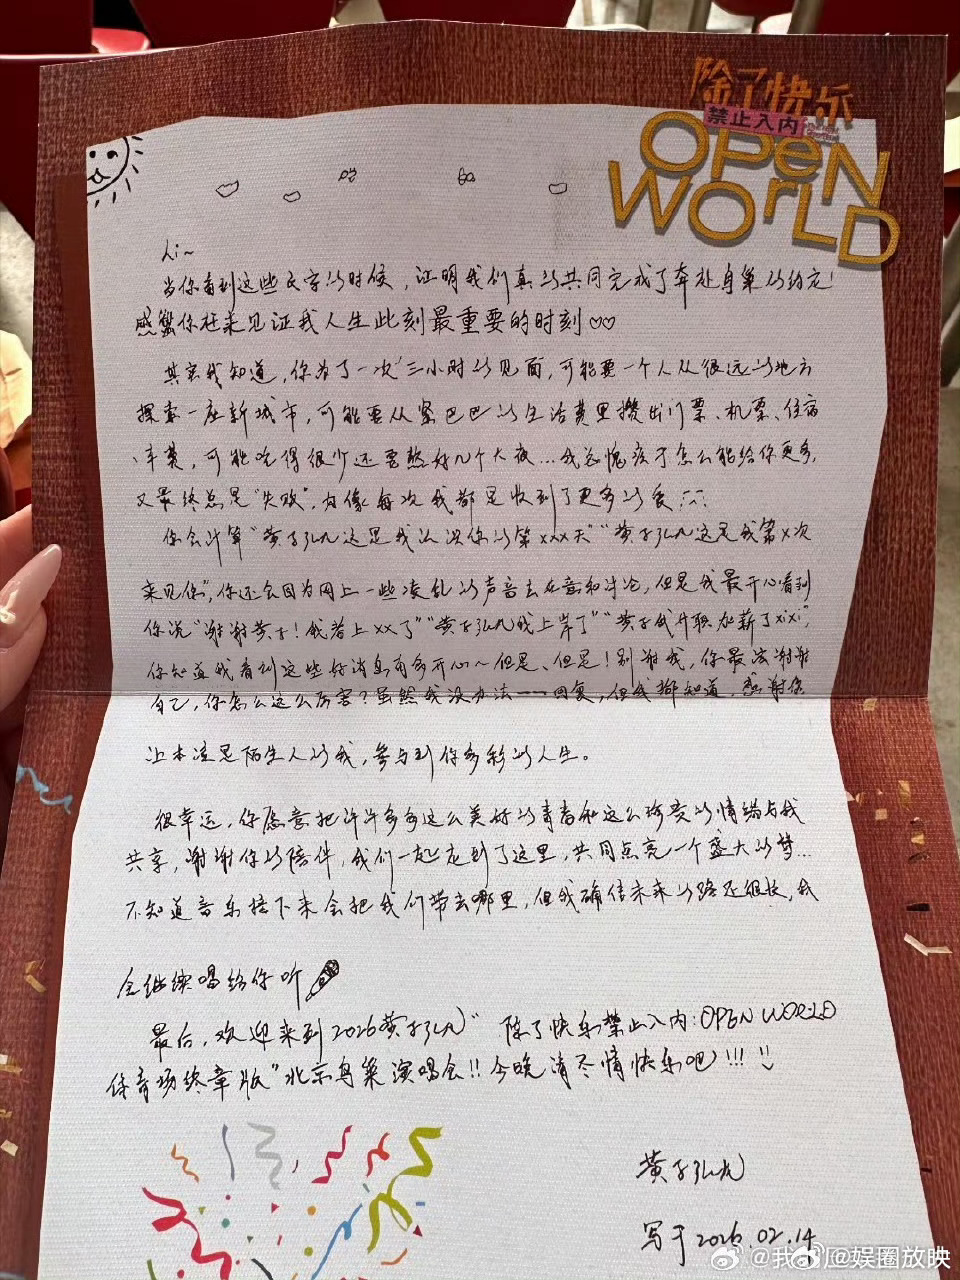 除了快乐
禁止入内
OPEN
WORLD
Hi~
当你看到这些文字的时候，证明我们真的共同完成了奔赴鸟巢的约定！
感谢你赶来见证我人生此刻最重要的时刻♡♡
其实我知道，你为了一次三小时的见面，可能要一个人从很远的地方
探索一座新城市，可能要从紧巴巴的生活费里攒出门票、机票、住宿
、车费，可能吃得很少还要熬好几个大夜...我总愧疚于怎么能给你更多，
又最终总是“失败”，好像每次我都是收到了更多的爱
你会计算“黄子弘凡这是我认识你的第xxx天”“黄子弘凡这是我第x次
来见你”，你还会因为网上一些凌乱的声音去在意和讨论，但是我最开心看到
你说“谢谢黄子！我考上xx了”“黄子弘凡我上岸了”“黄子我升职加薪了xixi”，
你知道我看到这些好消息有多开心~但是、但是！别谢我，你最该谢谢
自己，你怎么这么厉害？虽然我没办法一一回复，但我都知道，感谢你
让本该是陌生人的我，参与到你多彩的人生。
很幸运，你愿意把许许多多这么美好的青春和这么珍贵的情绪与我
共享，谢谢你的陪伴，我们一起走到了这里，共同点亮一个盛大的梦...
不知道音乐接下来会把我们带去哪里，但我确信未来的路还很长，我
会继续唱给你听
最后，欢迎来到2026黄子弘凡“除了快乐禁止入内：OPEN WORLD
体育场终章版”北京鸟巢演唱会!!今晚请尽情快乐吧!!!
黄子弘凡
写于2026.02.14
@娱圈放映